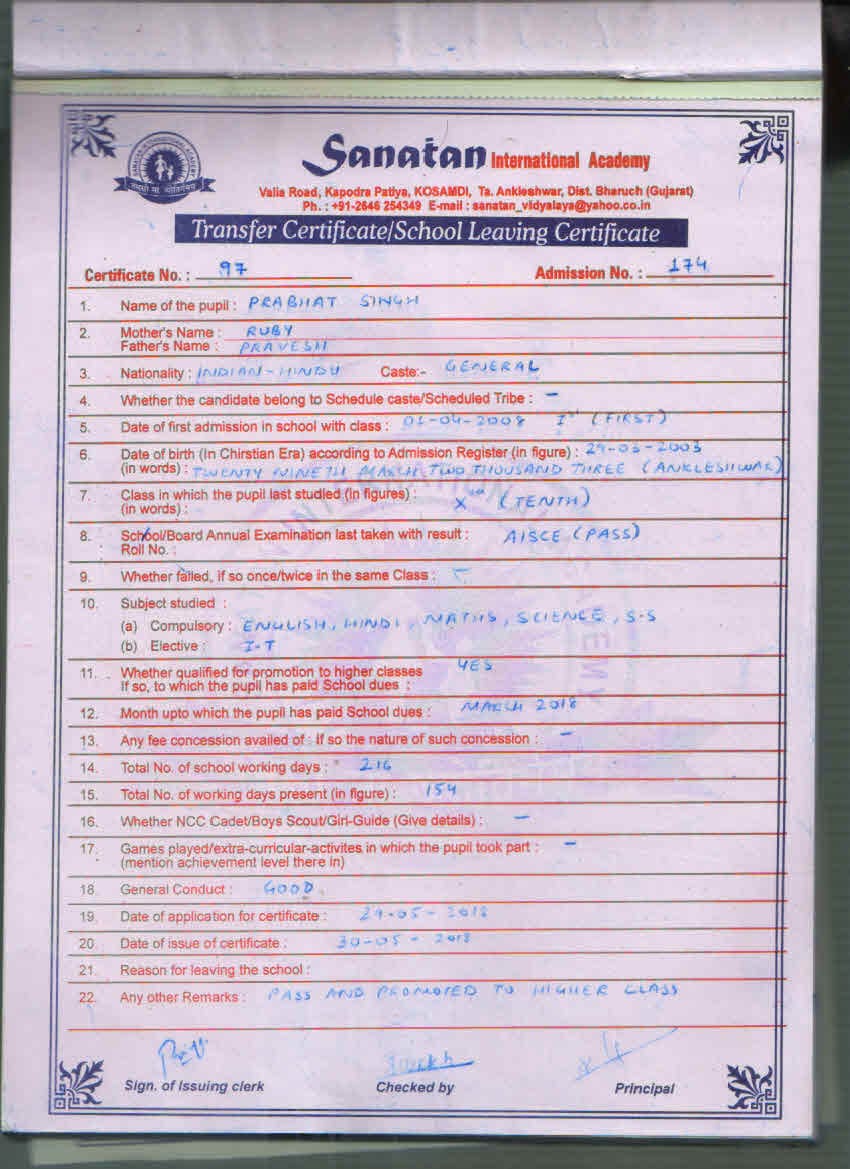 SANATAN INTERNATIONAL ACADEMY
तमसो मा ज्योतिर्गमय
Sanatan International Academy
Valia Road, Kapodra Patiya, KOSAMDI, Ta. Ankleshwar, Dist. Bharuch (Gujarat)
Ph. : +91-2646 254349 E-mail : sanatan_vidyalaya@yahoo.co.in
Transfer Certificate/School Leaving Certificate
Certificate No. : 97 Admission No. : 174
1. Name of the pupil : PRABHAT SINGH
2. Mother's Name : RUBY
Father's Name : PRAVESH
3. Nationality : INDIAN-HINDU Caste:- GENERAL
4. Whether the candidate belong to Schedule caste/Scheduled Tribe : -
5. Date of first admission in school with class : 01-04-2008 Ist (FIRST)
6. Date of birth (In Chirstian Era) according to Admission Register (in figure) : 29-03-2003
(in words) : TWENTY NINETH MARCH TWO THOUSAND THREE (ANKLESHWAR)
7. Class in which the pupil last studied (in figures) : Xth (TENTH)
(in words) :
8. School/Board Annual Examination last taken with result : AISCE (PASS)
Roll No. :
9. Whether failed, if so once/twice in the same Class : -
10. Subject studied :
(a) Compulsory : ENGLISH, HINDI, MATHS, SCIENCE, S-S
(b) Elective : I-T
11. Whether qualified for promotion to higher classes YES
If so, to which the pupil has paid School dues :
12. Month upto which the pupil has paid School dues : MARCH 2018
13. Any fee concession availed of : If so the nature of such concession : -
14. Total No. of school working days : 216
15. Total No. of working days present (in figure) : 154
16. Whether NCC Cadet/Boys Scout/Girl-Guide (Give details) : -
17. Games played/extra-curricular-activites in which the pupil took part : -
(mention achievement level there in)
18. General Conduct : GOOD
19. Date of application for certificate : 29-05-2018
20. Date of issue of certificate : 30-05-2018
21. Reason for leaving the school :
22. Any other Remarks : PASS AND PROMOTED TO HIGHER CLASS
Sign. of Issuing clerk Checked by Principal